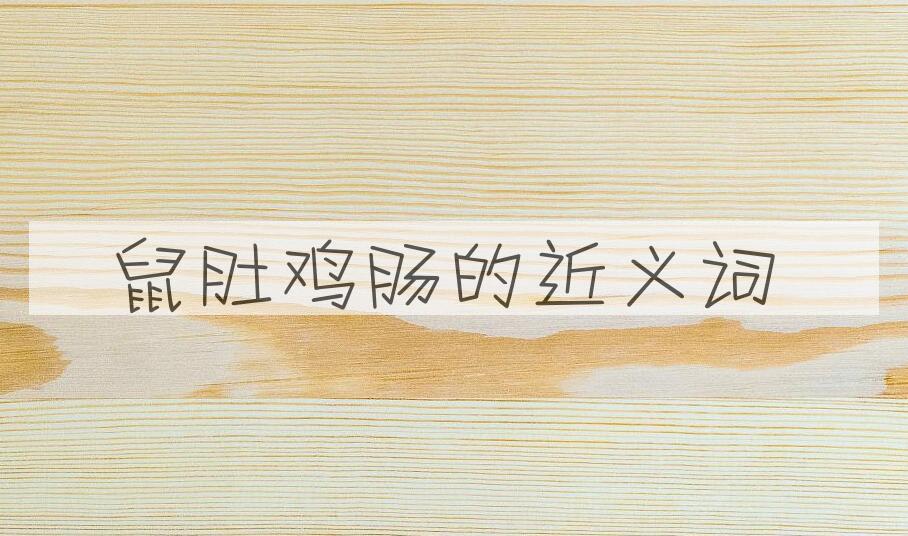 鼠肚鸡肠的近义词